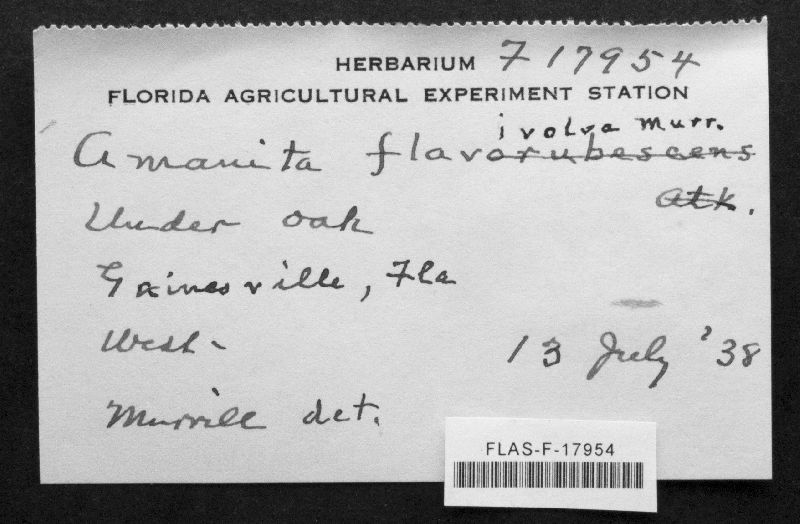 HERBARIUM F 17954
FLORIDA AGRICULTURAL EXPERIMENT STATION
ivolva Murr.
Amanita flavorubescens
Atk.
Under oak
Gainesville, Fla
West - 13 July '38
Murrill det.
FLAS-F-17954